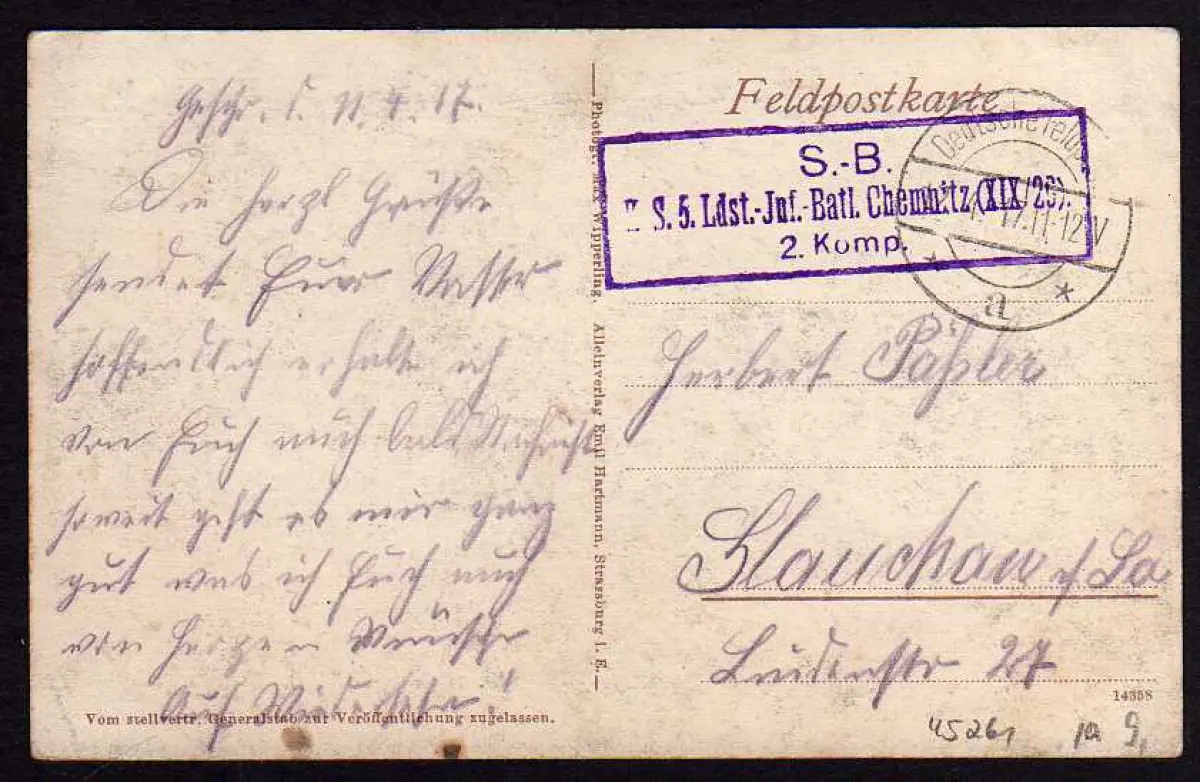 Geschr. d 11.4.17.
Die herzl Grüße
sendet Euer Vater
hoffendlich erhalte ich
von Euch auch bald Nachricht
soweit geht es mir ganz
gut was ich Euch auch
von Herzen Wünsche
Auf Wiedersehn!
Vom stellvertr. Generalstab zur Veröffentlichung zugelassen.
Photogr. Max Wipperling. Alleinverlag Emil Hartmann, Strassburg i. E.
Feldpostkarte
S.-B.
S. 5. Ldst.-Inf.-Batl. Chemnitz (XIX/25).
2. Komp.
Deutsche Feld
17.11-12V
* a *
Herbert Päßler
Glauchau i/Sa
27
14358
45261